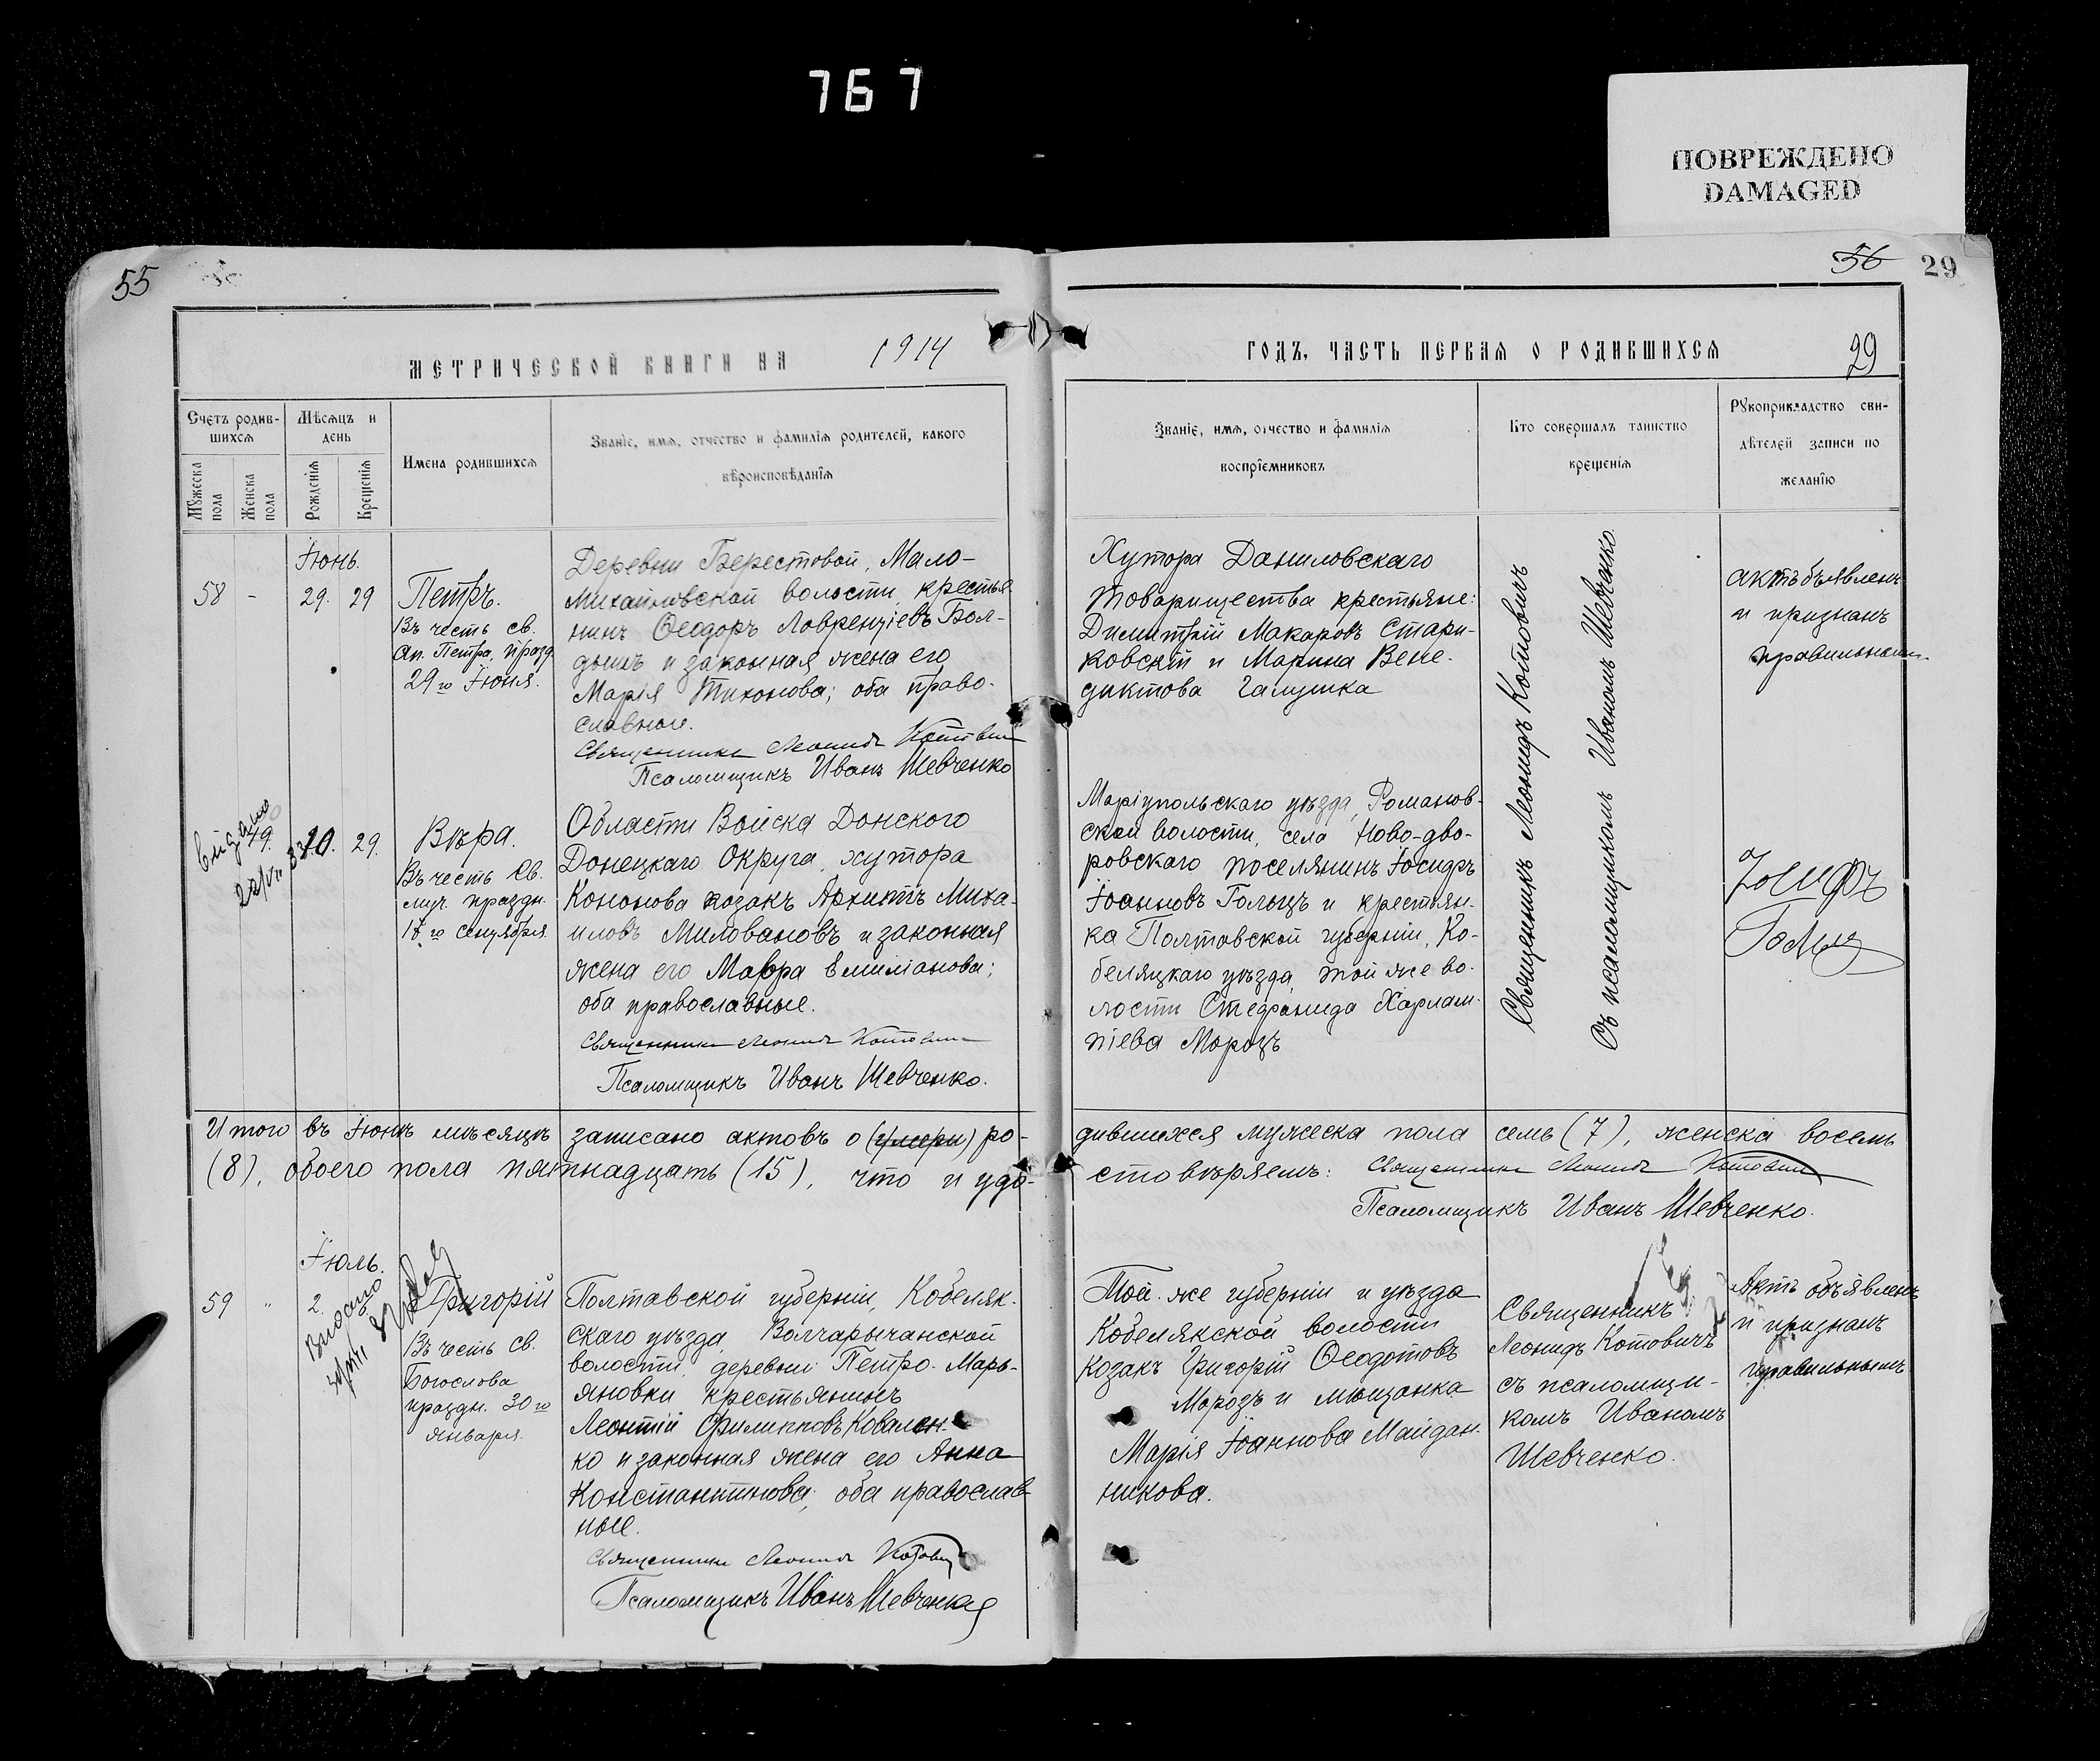 767
ПОВРЕЖДЕНО
DAMAGED
55
56
29
МЕТРИЧЕСКОЙ КНИГИ НА 1914
ГОДЪ, ЧАСТЬ ПЕРВАЯ О РОДИВШИХСЯ
29
Счетъ родив-
шихся
Мужеска
пола
Женска
пола
Мѣсяцъ и
день
Рожденія
Крещенія
Имена родившихся
Званіе, имя, отчество и фамилія родителей, какого
вѣроисповѣданія
Званіе, имя, отчество и фамилія
воспріемниковъ
Кто совершалъ таинство
крещенія
Рукоприкладство сви-
дѣтелей записи по
желанію
Іюнь.
58 - 29. 29
Петръ.
Въ честь св.
Ап. Петра, празд.
29го Іюня.
Деревни Берестовой, Мало-
Михайловской волости, крестья-
нинъ Ѳеодоръ Лаврентіевъ Бол-
дышъ и законная жена его
Марія Тихонова; оба право-
славные.
Священникъ Леонидъ Котовичъ
Псаломщикъ Иванъ Шевченко
Хутора Даниловскаго
Товарищества крестьяне:
Димитрій Макаровъ Стари-
ковскій и Марина Вене-
диктова Галушка
Священникъ Леонидъ Котовичъ
Съ псаломщикомъ Иваномъ Шевченко
актъ объявленъ
и признанъ
правильнымъ
Выдано
49. 10. 29.
Вѣра.
Въ честь Св.
муч. праздн.
17го сентября.
Области Войска Донского
Донецкаго Округа, хутора
Кононова козакъ Архипъ Миха-
иловъ Миловановъ и законная
жена его Мавра Емиліанова;
оба православные.
Священникъ Леонидъ Котовичъ
Псаломщикъ Иванъ Шевченко.
Маріупольскаго уѣзда, Романов-
ской волости, села Ново-дво-
ровскаго поселянинъ Іосифъ
Іоанновъ Гольцъ и крестьян-
ка Полтавской губерніи, Ко-
беляцкаго уѣзда, той же во-
лости Стефанида Харлам-
піева Морозъ
Іосифъ
Гольцъ
Итого въ Іюнѣ мѣсяцѣ записано актовъ о (умерш) ро-
дившихся мужеска пола семь (7), женска восемь
(8), обоего пола пятнадцать (15), что и удо-
стовѣряемъ: Священникъ Леонидъ Котовичъ
Псаломщикъ Иванъ Шевченко.
Іюль.
59 " 2. 6.
Выдано
Григорій
Въ честь св.
Богослова
праздн. 30го
января.
Полтавской губерніи, Кобеляк-
скаго уѣзда, Волчарычанской
волости, деревни Петро-Марь-
яновки крестьянинъ
Леонтій Филипповъ Ковален-
ко и законная жена его Анна
Константинова; оба православ-
ные.
Священникъ Леонидъ Котовичъ
Псаломщикъ Иванъ Шевченко
Той-же губерніи и уѣзда
Кобелякской волости
козакъ Григорій Ѳеодотовъ
Морозъ и мѣщанка
Марія Іоаннова Майдан-
никова.
Священникъ
Леонидъ Котовичъ
съ псаломщи-
комъ Иваномъ
Шевченко.
Актъ объявленъ
и признанъ
правильнымъ